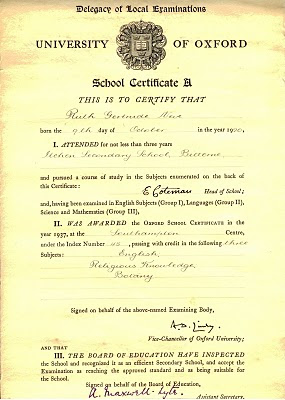 Delegacy of Local Examinations
UNIVERSITY OF OXFORD
School Certificate A
THIS IS TO CERTIFY THAT
Ruth Gertrude
born the 9th day of October in the year 1920,
I. ATTENDED for not less than three years
Itchen Secondary School, Bitterne
and pursued a course of study in the Subjects enumerated on the back of
this Certificate:
E Coteman Head of School;
and, having been examined in English Subjects (Group I), Languages (Group II),
Science and Mathematics (Group III),
II. WAS AWARDED the OXFORD SCHOOL CERTIFICATE in the
year 1937, at the Southampton Centre,
under the Index Number 45, passing with credit in the following three
Subjects: English,
Religious Knowledge,
Botany
Signed on behalf of the above-named Examining Body,
A.D. Lindsay
Vice-Chancellor of Oxford University;
AND THAT
III. THE BOARD OF EDUCATION HAVE INSPECTED
the School and recognized it as an efficient Secondary School, and accept the
Examination as reaching the approved standard and as being suitable
for the School.
Signed on behalf of the Board of Education,
A. Maxwell-Lyte.
Assistant Secretary.